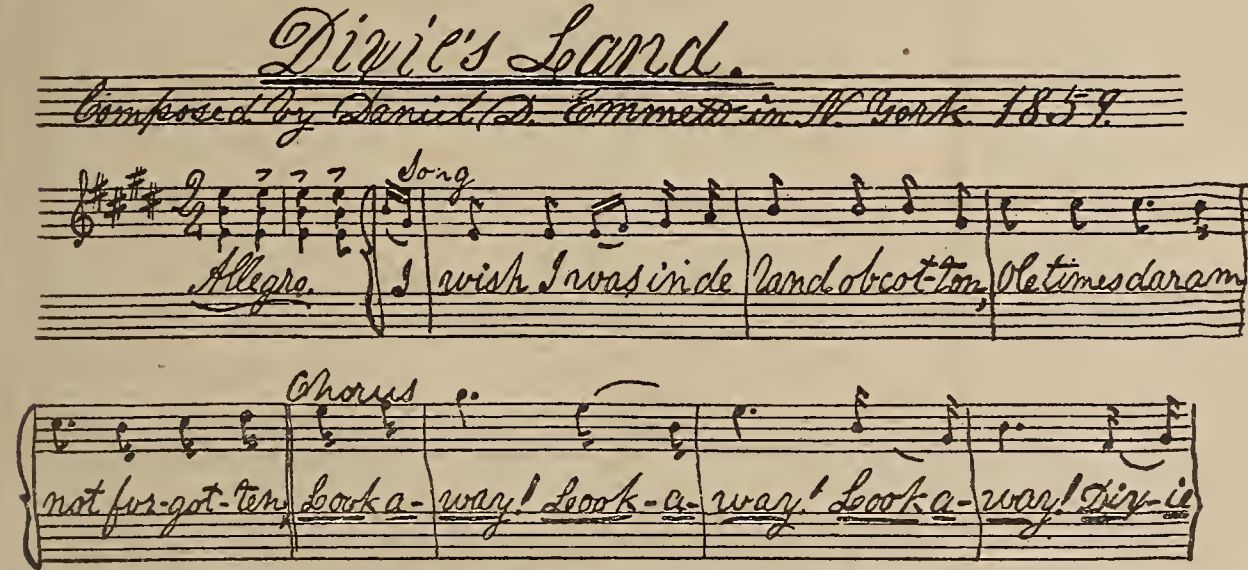 Dixie's Land.
Composed by Daniel D. Emmett in N. York 1859.
Song
2/4
Allegro.
I wish I was in de land ob cot-ton, Ole times dar am
Chorus
not for-got-ten, Look a-way! Look-a-way! Look a-way! Dix-ie